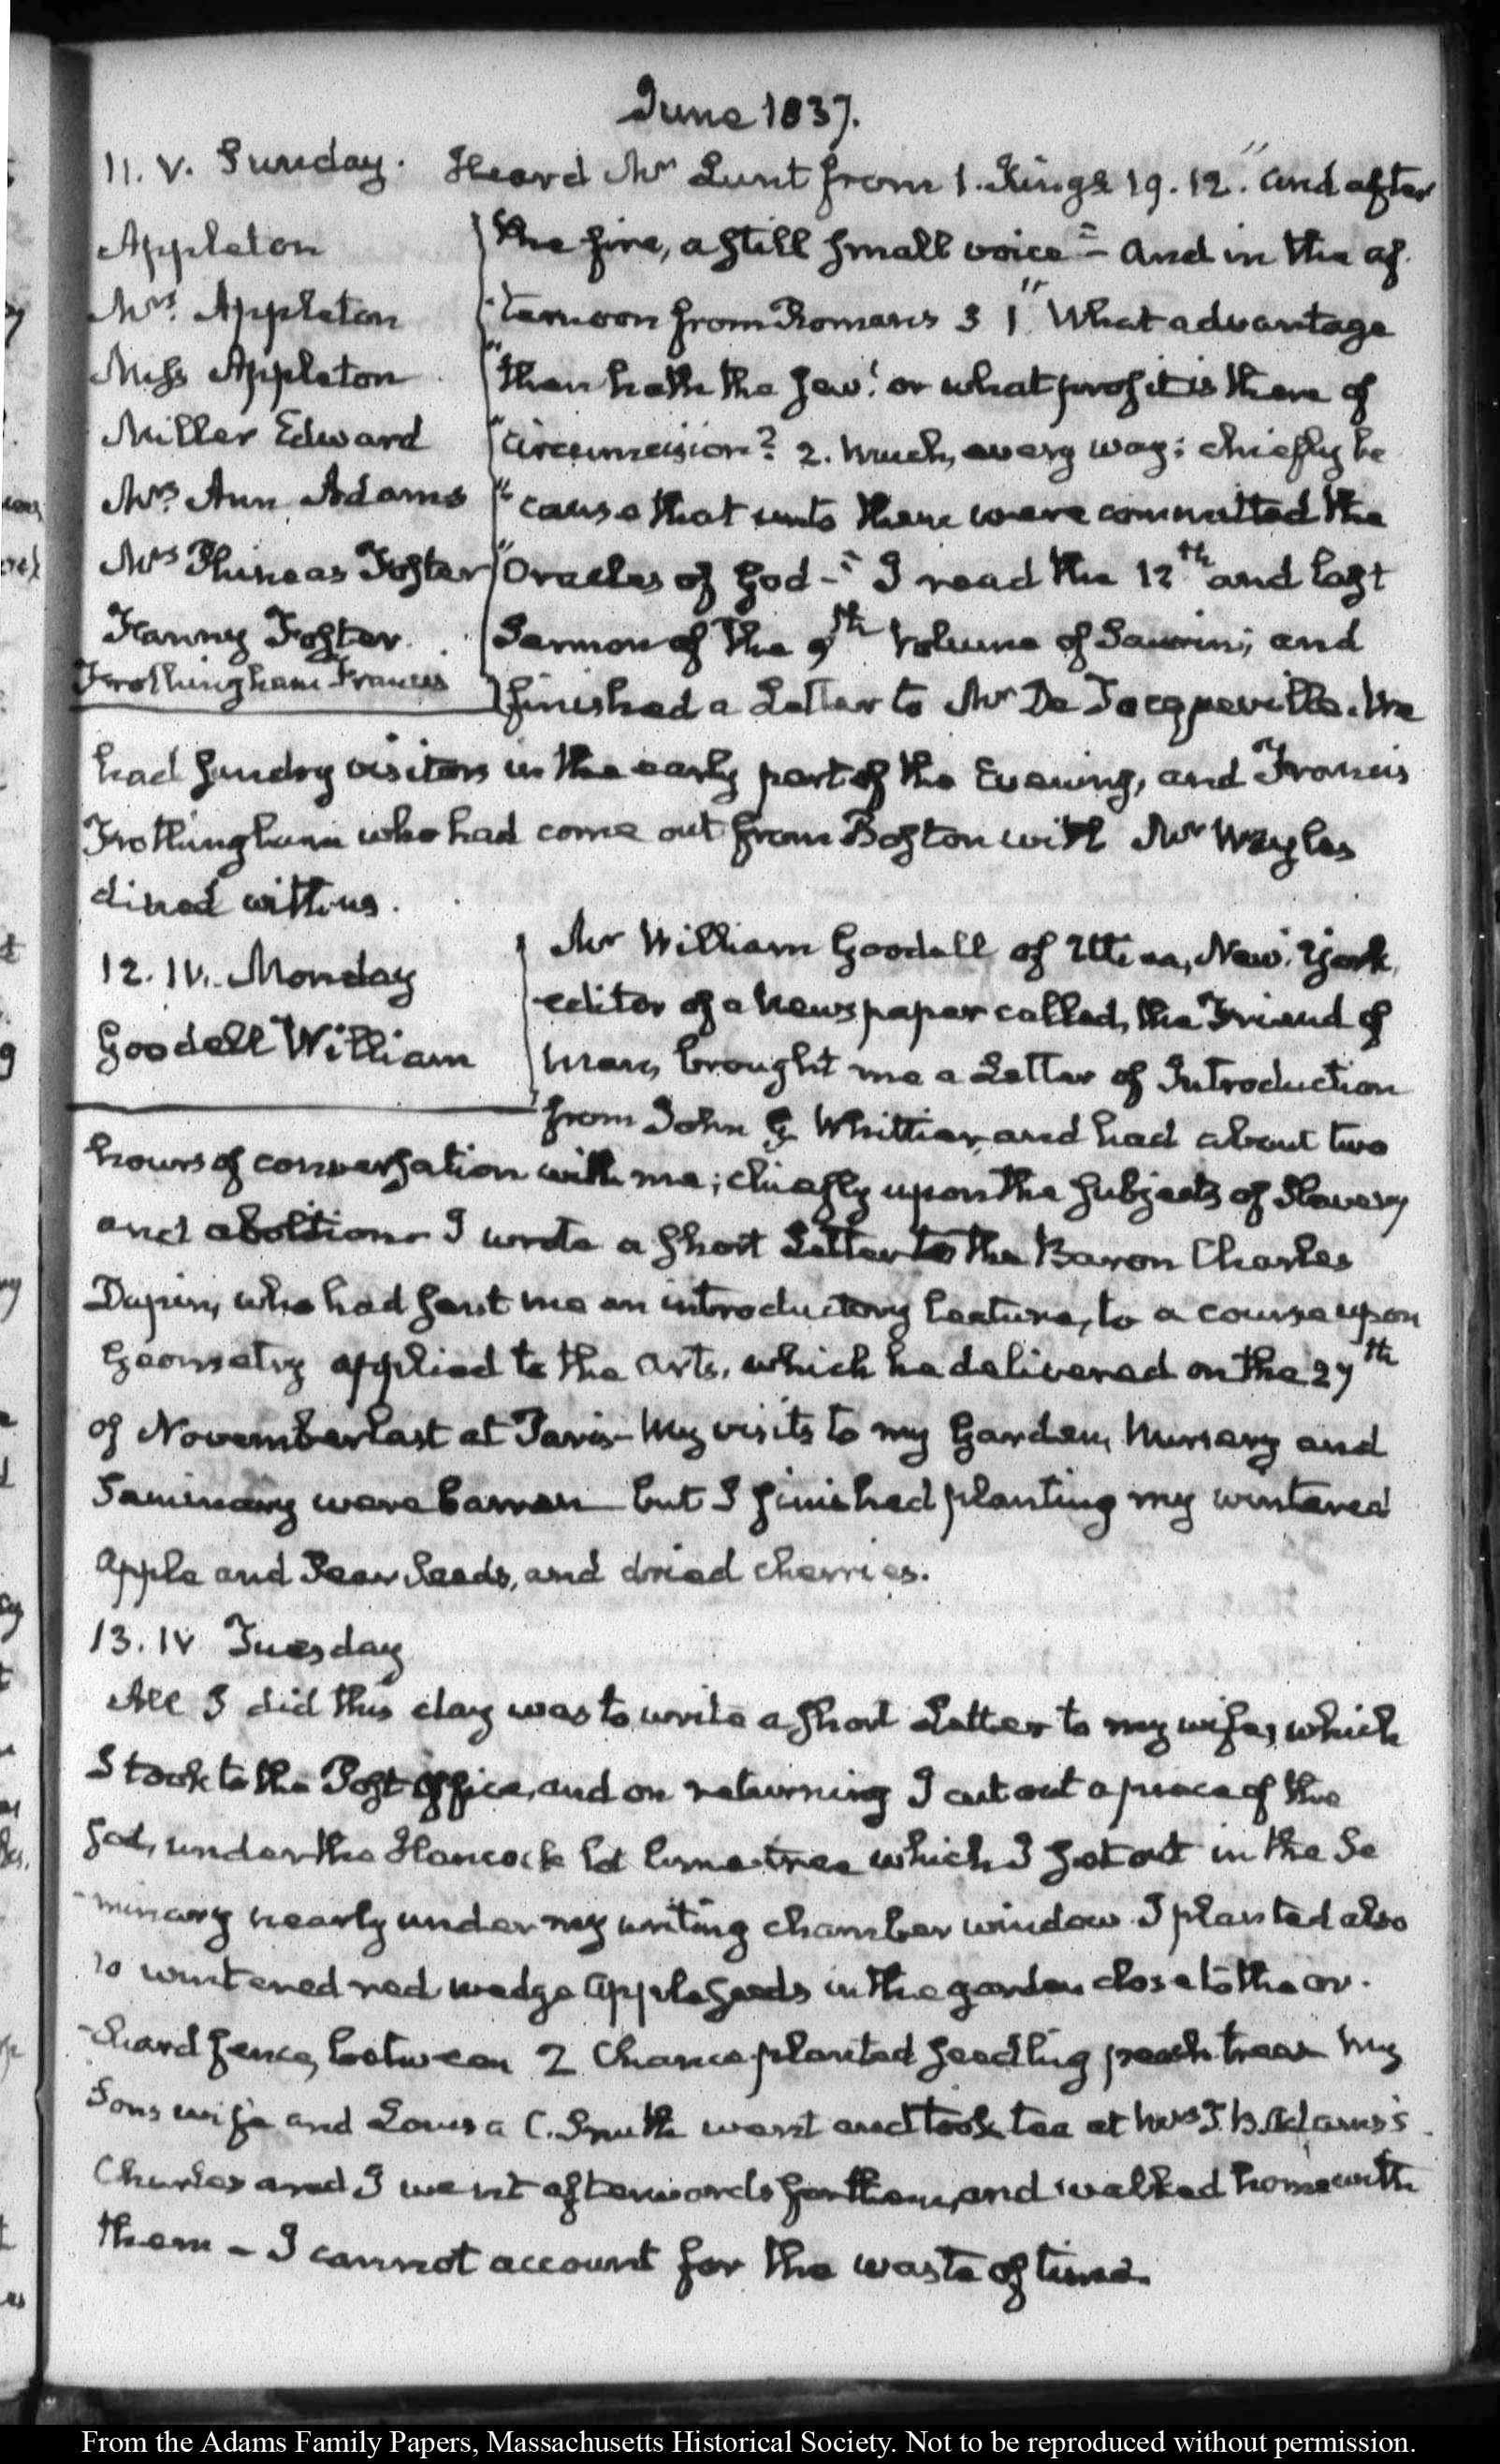 June 1837.
11. V. Sunday. Heard Mr Lunt from 1. Kings 19. 12. "and after
Appleton
Mrs. Appleton
Miss Appleton
Miller Edward
Mrs. Ann Adams
Mrs Phineas Foster
Fanny Foster.
Frothingham Francis
"the fire, a still small voice" - And in the af-
-ternoon from Romans 3 1 "What advantage
"then hath the Jew? or what profit is there of
"circumcision? 2. Much, every way: chiefly be
"cause that unto them were committed the
"Oracles of God-" I read the 12th and last
Sermon of the 9th Volume of Saurin; and
finished a Letter to Mr De Tocqueville. We
had sundry visitors in the early part of the Evening, and Francis
Frothingham who had come out from Boston with Mr Wayles
dined with us.
12. IV. Monday
Goodell William
Mr William Goodell of Utica, New-York,
editor of a Newspaper called, the Friend of
Man, brought me a Letter of Introduction
from John G Whittier, and had about two
hours of conversation with me; chiefly upon the subjects of Slavery
and abolition- I wrote a short Letter to the Baron Charles
Dupin, who had sent me an introductory Lecture, to a course upon
Geometry applied to the arts, which he delivered on the 27th
of November last at Paris- My visits to my Garden, Nursery and
Seminary were barren but I finished planting my wintered
apple and Pear Seeds, and dried cherries.
13. IV Tuesday
All I did this day was to write a short Letter to my wife, which
I took to the Post-Office, and on returning I cut out a piece of the
sod, under the Hancock lot lime-tree which I set out in the Se
-minary nearly under my writing chamber window. I planted also
10 wintered red wedge apple seeds in the garden close to the or-
-chard fence, between 2 Chance planted seedling peach trees My
Sons wife and Louisa C. Smith went and took tea at Mrs T. B. Adams's.
Charles and I went afterwards for them, and walked home with
them - I cannot account for the waste of time.
From the Adams Family Papers, Massachusetts Historical Society. Not to be reproduced without permission.